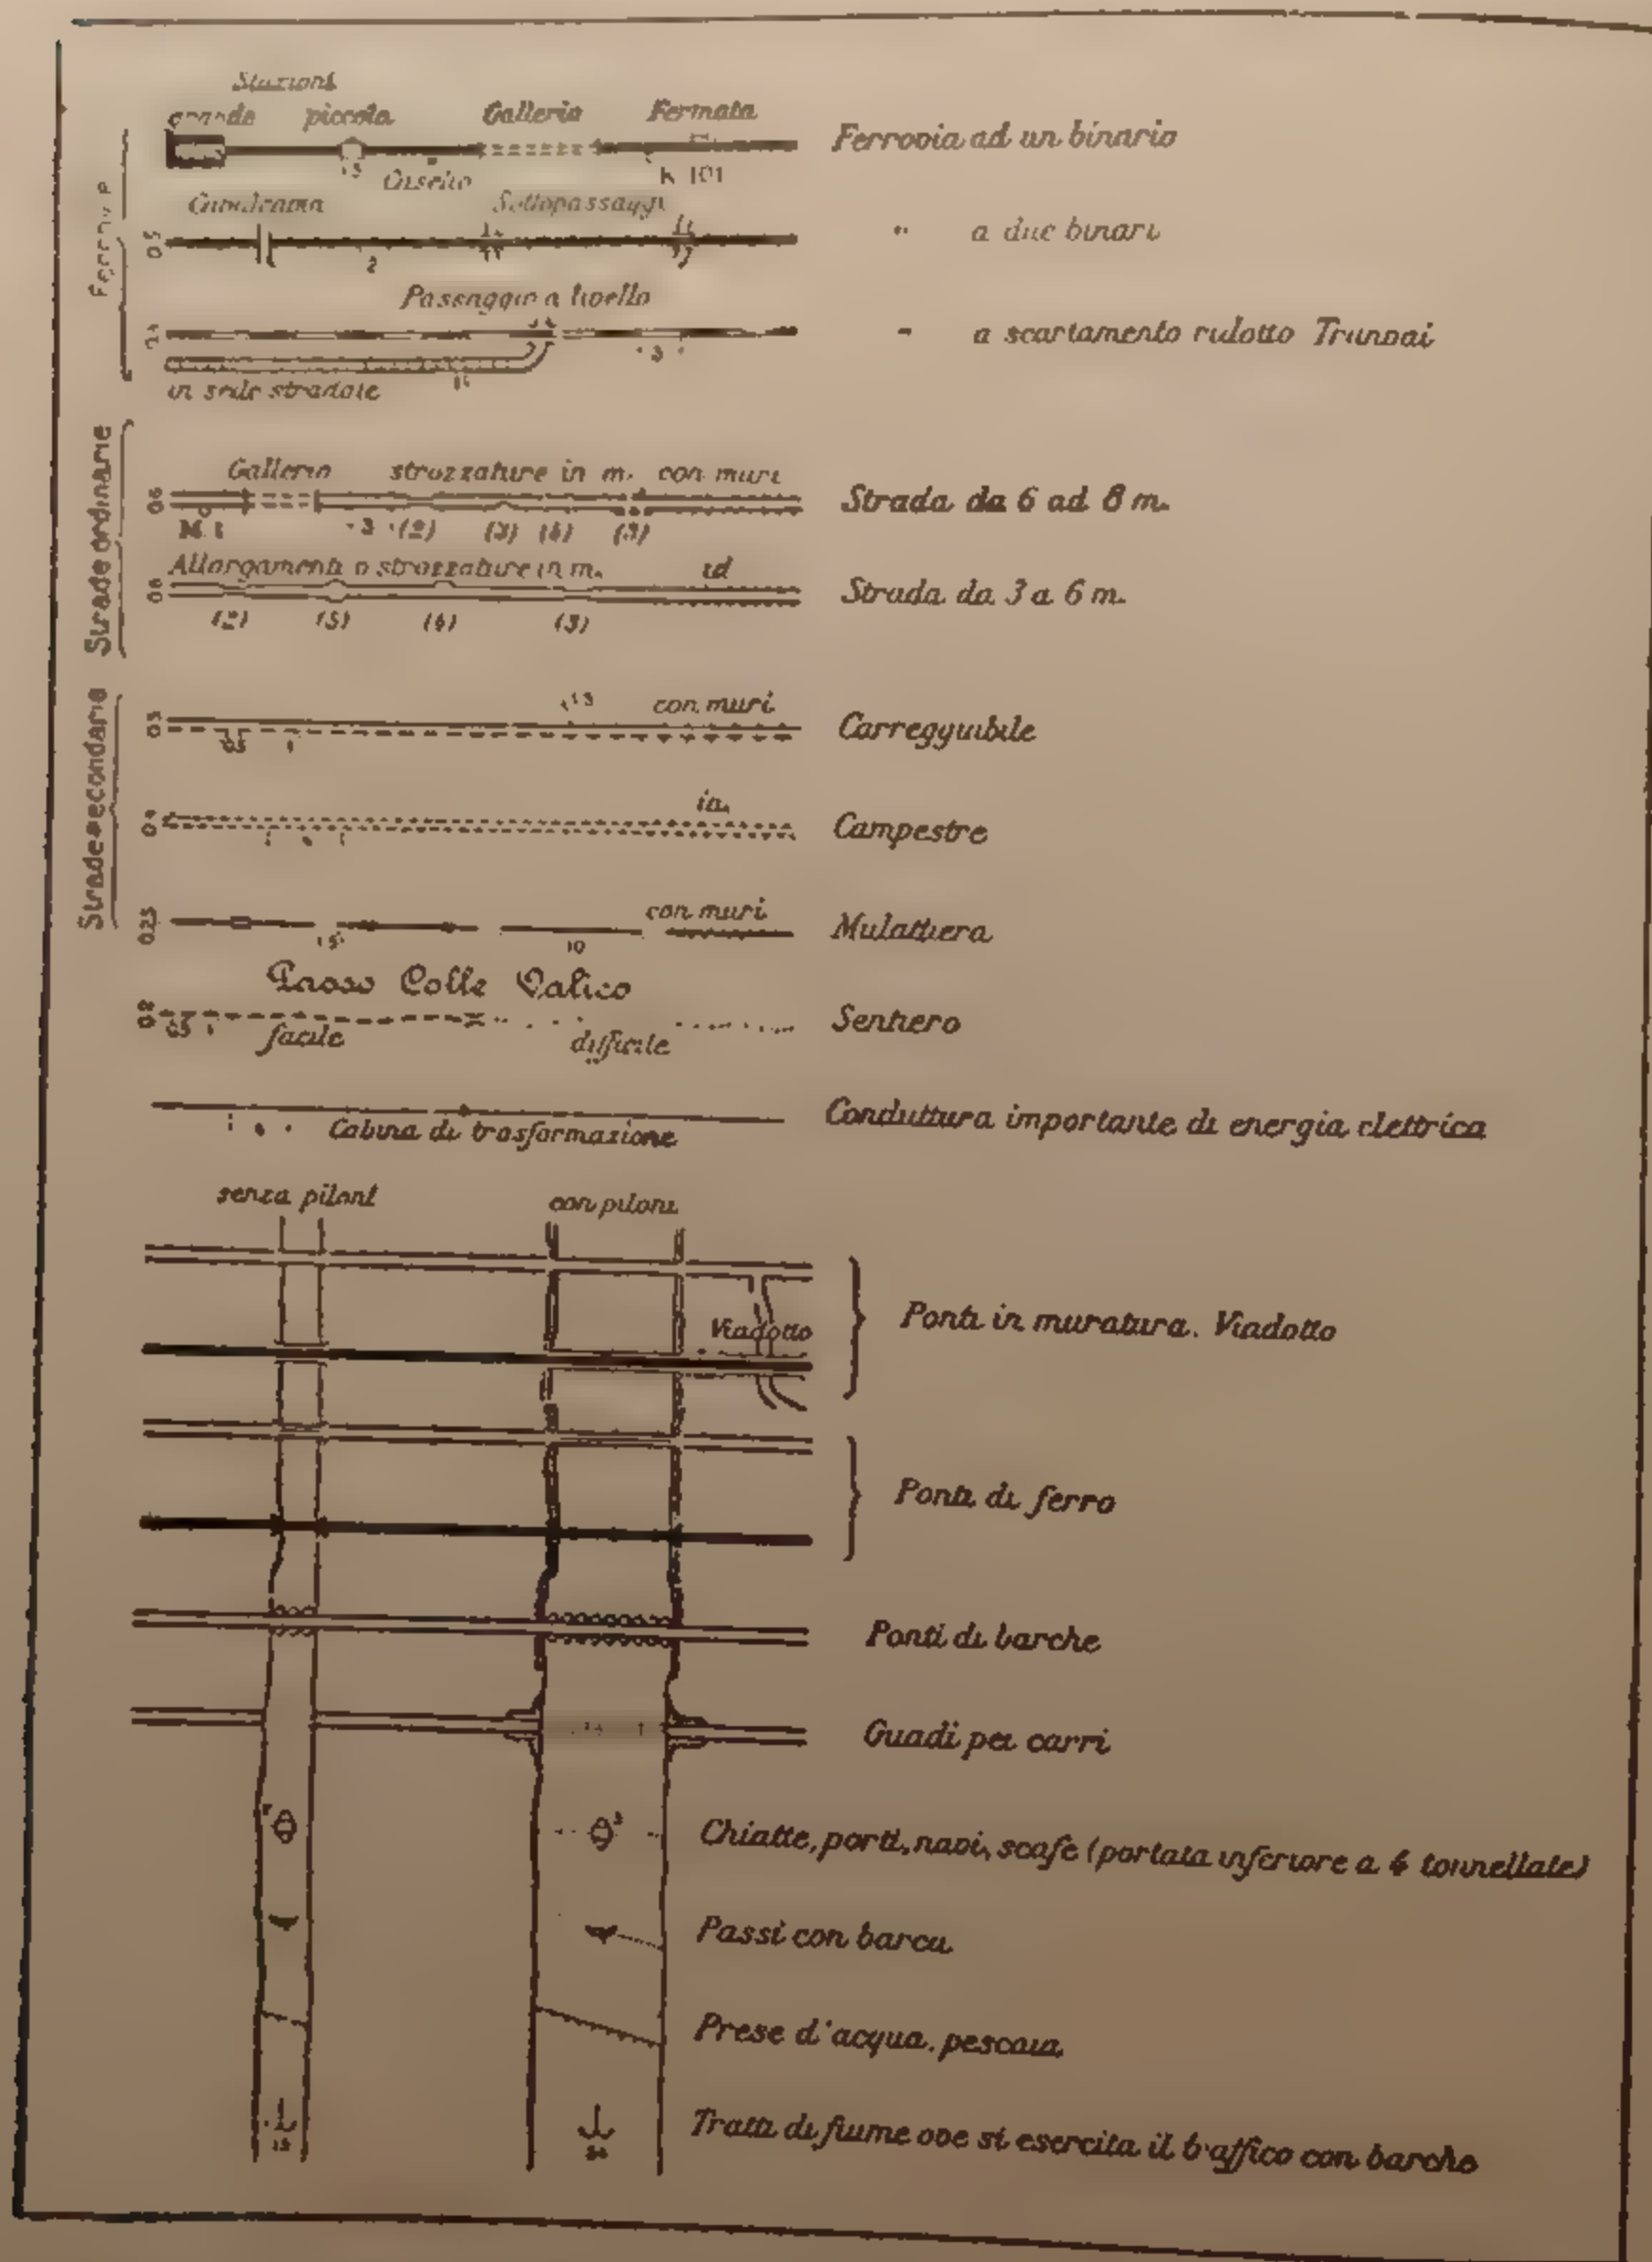 Stazioni
grande piccola Galleria Fermata
Ferrovia ad un binario
1,5 Casello K 101
Cavalcavia Sottopassaggi
Ferrovie
0.5
" a due binari
2
Passaggio a livello
" a scartamento ridotto Tranvai
3
in sede stradale
Strade ordinarie
Galleria strozzature in m. con muri
0.6
Strada da 6 ad 8 m.
M. 1 3 (2) (3) (4) (3)
Allargamenti o strozzature in m. id
0.6
Strada da 3 a 6 m.
(2) (5) (4) (3)
Strade secondarie
con muri
0.5
Carreggiabile
0.5 1
id.
Campestre
con muri
0.25
Mulattiera
1.5 10
Passo Colle Valico
0.2
Sentiero
0.5 facile difficile
Conduttura importante di energia elettrica
Cabina di trasformazione
senza piloni con piloni
Viadotto
Ponti in muratura. Viadotto
Ponti di ferro
Ponti di barche
Guadi per carri
Chiatte, porti, navi, scafe (portata inferiore a 4 tonnellate)
Passi con barca
Prese d'acqua. pescaia
Tratti di fiume ove si esercita il traffico con barche